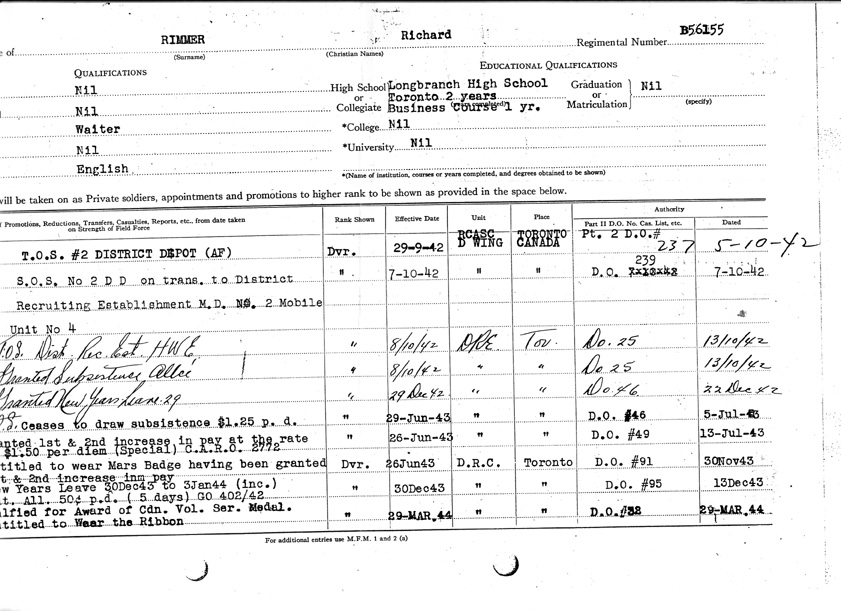 RIMMER Richard B56155
e of (Surname) (Christian Names) Regimental Number
QUALIFICATIONS EDUCATIONAL QUALIFICATIONS
Nil High School or Collegiate Longbranch High School Toronto 2 years Business Course 1 yr. Graduation or Matriculation } Nil (specify)
Nil
Waiter *College Nil
Nil *University Nil
English *(Name of institution, courses or years completed, and degrees obtained to be shown)
will be taken on as Private soldiers, appointments and promotions to higher rank to be shown as provided in the space below.
f Promotions, Reductions, Transfers, Casualties, Reports, etc., from date taken on Strength of Field Force Rank Shown Effective Date Unit Place Authority
Part II D.O. No. Cas. List, etc. Dated
T.O.S. #2 DISTRICT DEPOT (AF) Dvr. 29-9-42 RCASC D WING TORONTO CANADA Pt. 2 D.O.# 237 5-10-42
S.O.S. No 2 D D on trans. to District " 7-10-42 " " D.O. 239 7-10-42
Recruiting Establishment M.D. No. 2 Mobile
Unit No 4
T.O.S. Dist. Rec. Est. H.W.E. " 8/10/42 DRE Tor. Do. 25 13/10/42
Granted Subsistence Allce " 8/10/42 " " Do 25 13/10/42
Granted New Years Leave 29 " 29 Dec 42 " " Do. 46 22 Dec 42
Ceases to draw subsistence $1.25 p. d. " 29-Jun-43 " " D.O. #46 5-Jul-43
anted 1st & 2nd increase in pay at the rate " 26-Jun-43 " " D.O. #49 13-Jul-43
$1.50 per diem (Special) C.A.R.O. 2772
titled to wear Mars Badge having been granted Dvr. 26Jun43 D.R.C. Toronto D.O. #91 30Nov43
t & 2nd increase inm pay
w Years Leave 30Dec43 to 3Jan44 (inc.) " 30Dec43 " " D.O. #95 13Dec43
t. All. 50¢ p.d. ( 5 days) GO 402/42
lified for Award of Cdn. Vol. Ser. Medal. " 29-MAR.44 " " D.O. #32 29-MAR.44
titled to Wear the Ribbon
For additional entries use M.F.M. 1 and 2 (a)